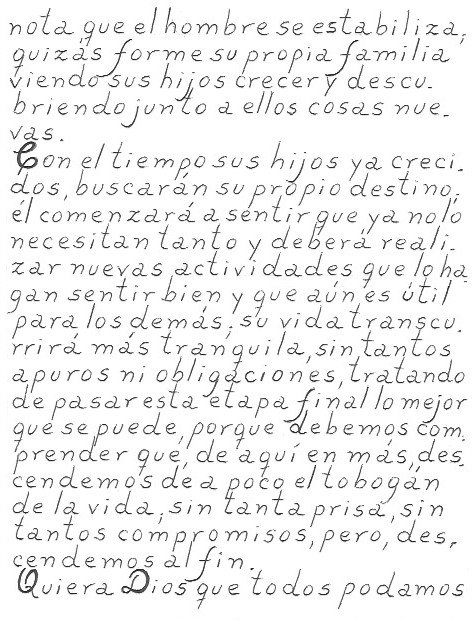 nota que el hombre se estabiliza,
quizás forme su propia familia
viendo sus hijos crecer y descu-
briendo junto a ellos cosas nue-
vas.
Con el tiempo sus hijos ya creci-
dos, buscarán su propio destino;
él comenzará a sentir que ya no lo
necesitan tanto y deberá reali-
zar nuevas actividades que lo ha-
gan sentir bien y que aún es útil
para los demás; su vida transcu-
rrirá más tranquila, sin tantos
apuros ni obligaciones, tratando
de pasar esta etapa final lo mejor
que se puede, porque debemos com-
prender que, de aquí en más, des-
cendemos de a poco el tobogán
de la vida, sin tanta prisa, sin
tantos compromisos, pero, des-
cendemos al fin.
Quiera Dios que todos podamos